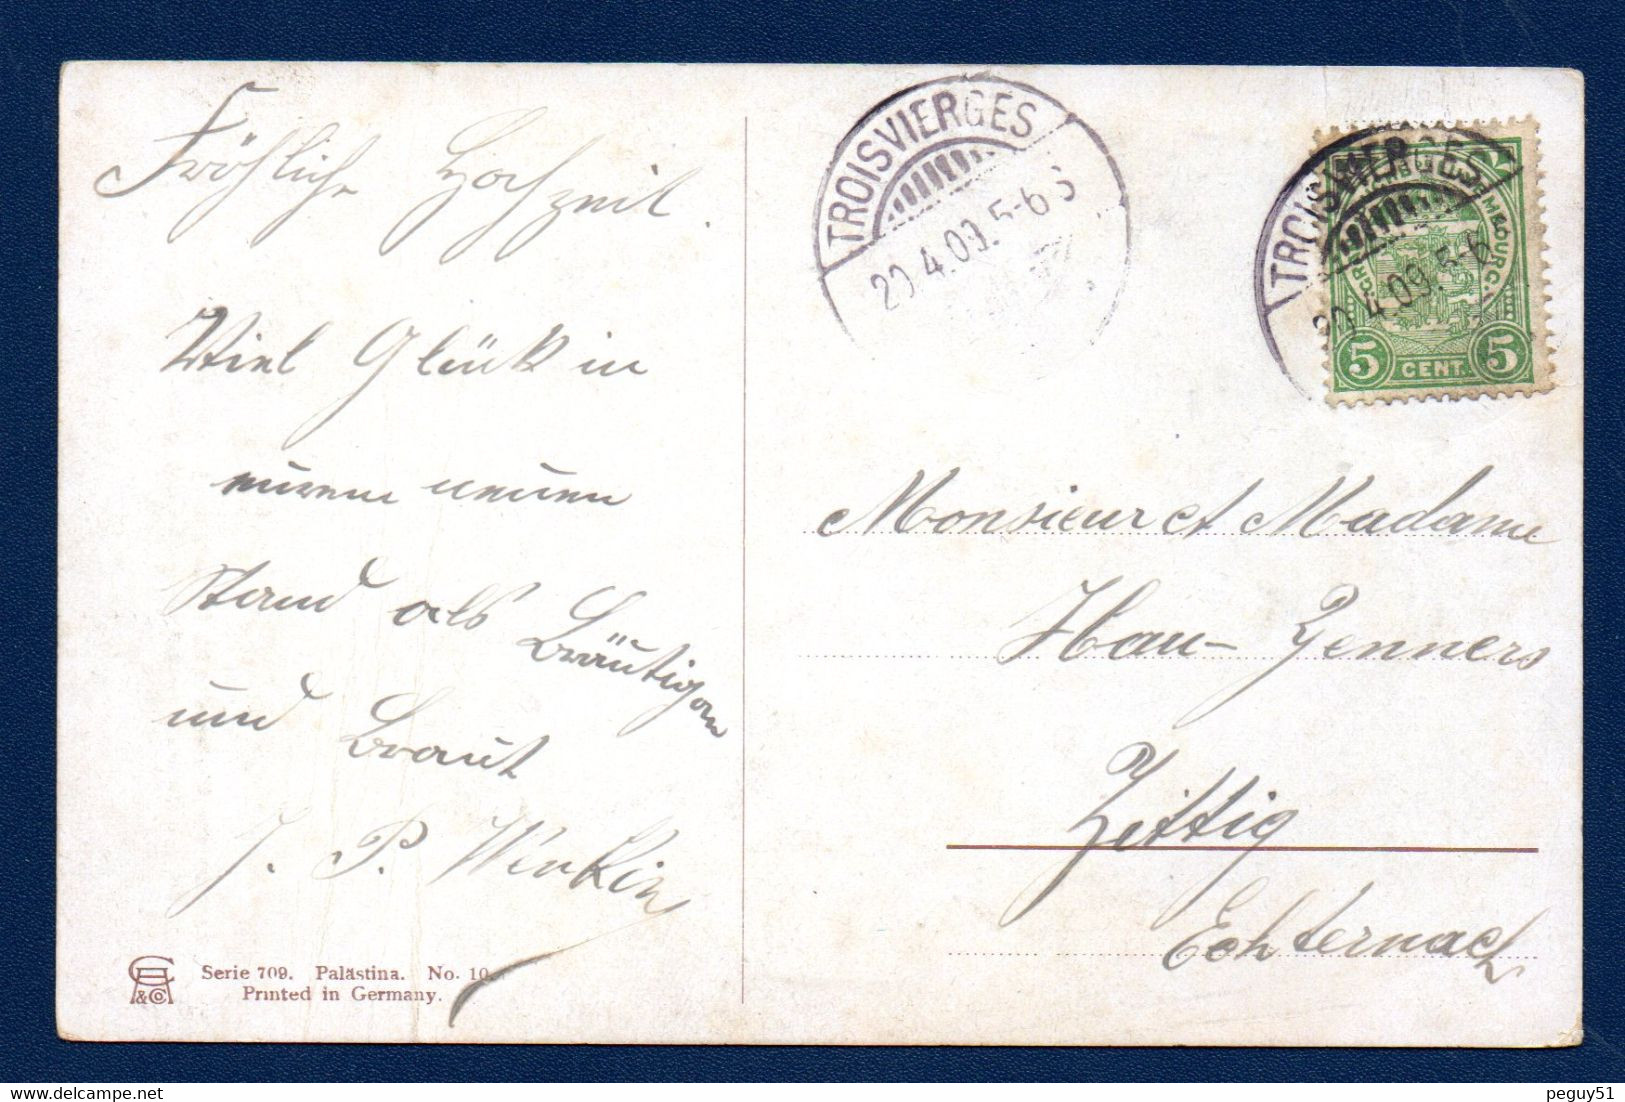 Fröhliche Hochzeit.
Viel Glück in
eurem neuen
Stand als Bräutigam
und Braut
J. P. Wenkin
Serie 709. Palästina. No. 10.
Printed in Germany.
&Co
TROISVIERGES
20.4.09. 5-6 S
TROISVIERGES
20.4.09. 5-6
5 CENT. 5
Monsieur et Madame
Hau-Zenners
Zittig
Echternach
peguy51